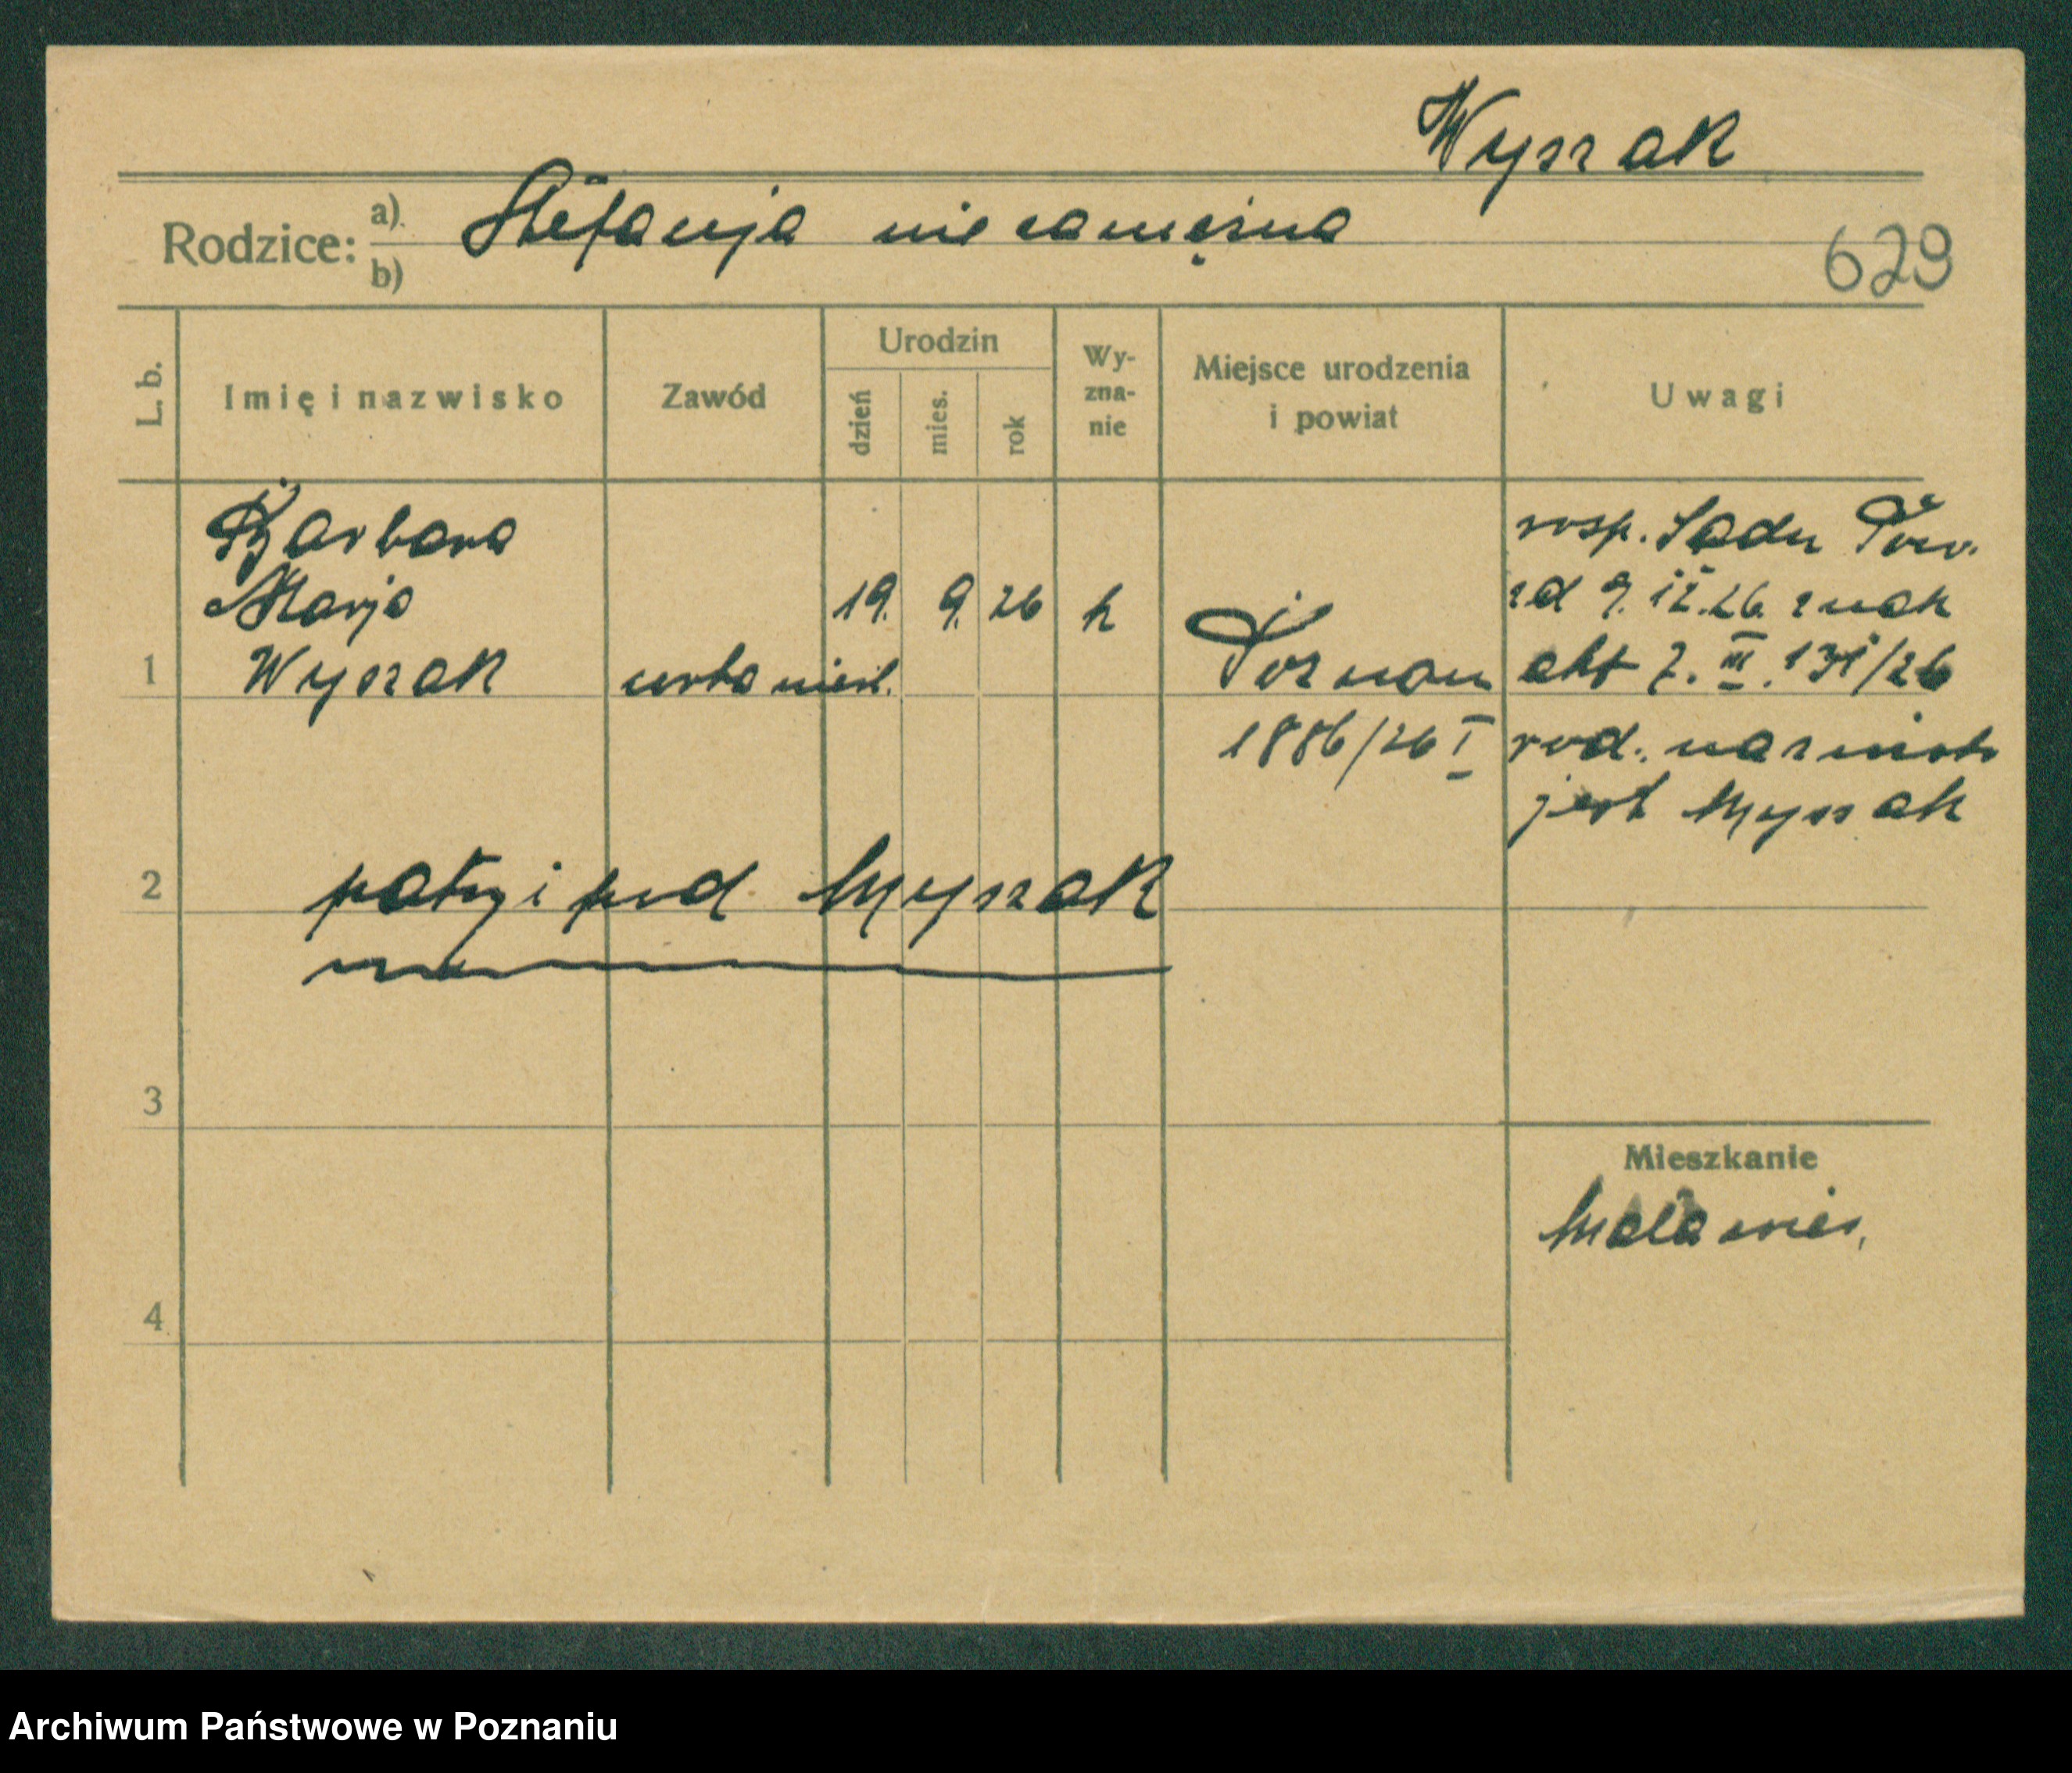 Wyszak
Rodzice: a) Stefanja niezamężna
b)
629
L. b.
Imię i nazwisko
Zawód
Urodzin
dzień
mies.
rok
Wy-
zna-
nie
Miejsce urodzenia
i powiat
Uwagi
Barbara
Marja
1 Wyszak
19. 9. 26 k
Poznań
1886/26 I
rosp. Sądu Pow.
akt 7. III. 131/26
rod. nazwisko
jest Myszak
2 patrz i pod Myszak
3
4
Mieszkanie
Archiwum Państwowe w Poznaniu